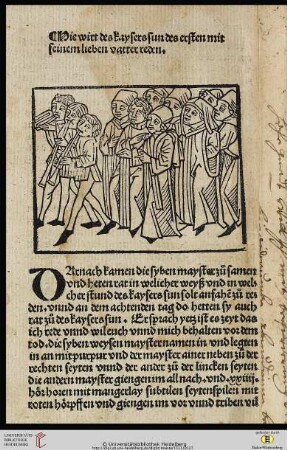 Wie wirt des kaysers sun des ersten mit
seinem lieben vatter reden.
DArnach kamen die syben mayster zů samen
vnd heten rat in welicher weyß vnd in wel
cher stund des kaysers sun solt anfahē zů re
den, vnnd an dem achtenden tag do hetten sy auch
rat zů des kaysers sun. Er sprach yetz ist es zeyt das
ich rede vnnd wil euch vnnd mich behalten vor dem
tod. die syben weysen mayster namen in vnd legten
in an mit purpur vnd der mayster ainer neben zů der
rechten seyten vnnd der ander zů der lincken seyten
die andern mayster giengen im all nach, vnd
hört horen mit mangerlay subtilen seytenspilen mit
roten hörpffen vnd giengen im vor vnnd triben vil
UNIVERSITÄTS-
BIBLIOTHEK
HEIDELBERG
© Universitätsbibliothek Heidelberg
Baden-Württemberg